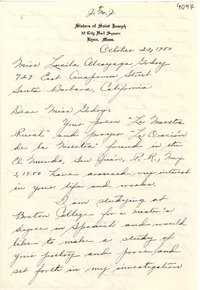 J.M.J.
4097
Sisters of Saint Joseph
32 City Hall Square
Lynn, Mass.
October 24, 1950
Miss Lucila Alcayaga Godoy
729 East Anapamu Street
Santa Barbara, California
Dear Miss Godoy:
Your poem "La Maestra
Rural" and prayer "La Oración
de la Maestra" found in the
El Mundo, San Juan, P.R., May
2, 1950 have aroused my interest
in your life and works.
I am studying at
Boston College for a Master's
degree in Spanish and would
like to make a study of
your poetry and prose and
set forth in my investigation